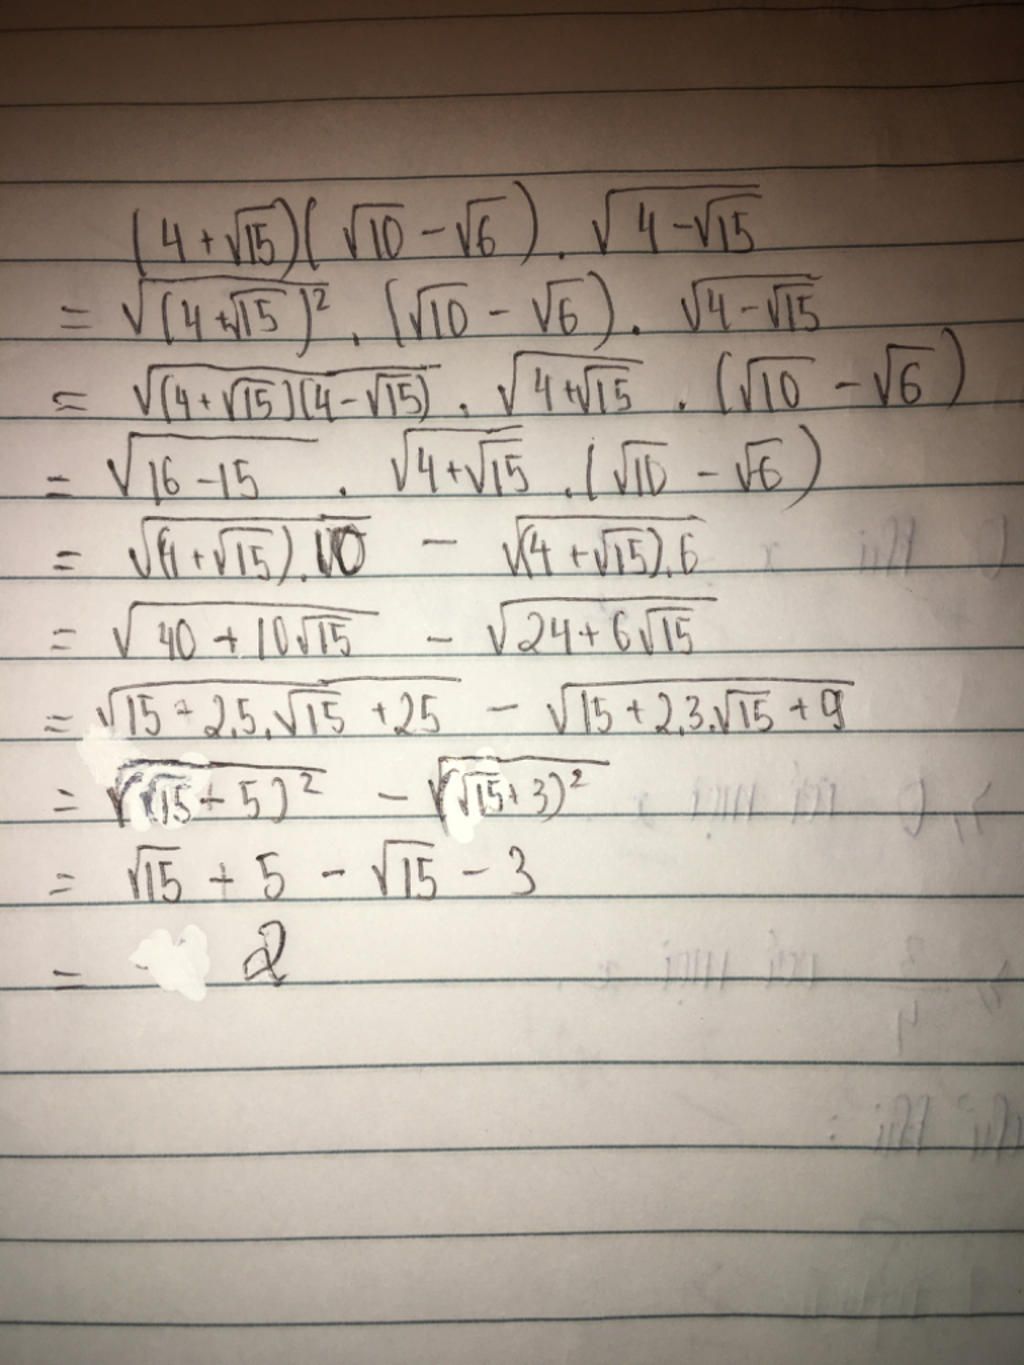 (4 + √15)(√10 − √6) . √(4 − √15)
= √((4 + √15)²) . (√10 − √6) . √(4 − √15)
= √((4 + √15)(4 − √15)) . √(4 + √15) . (√10 − √6)
= √(16 − 15) . √(4 + √15) . (√10 − √6)
= √((4 + √15).10) − √((4 + √15).6)
= √(40 + 10√15) − √(24 + 6√15)
= √(15 + 2.5.√15 + 25) − √(15 + 2.3.√15 + 9)
= √((√15 + 5)²) − √((√15 + 3)²)
= √15 + 5 − √15 − 3
= 2